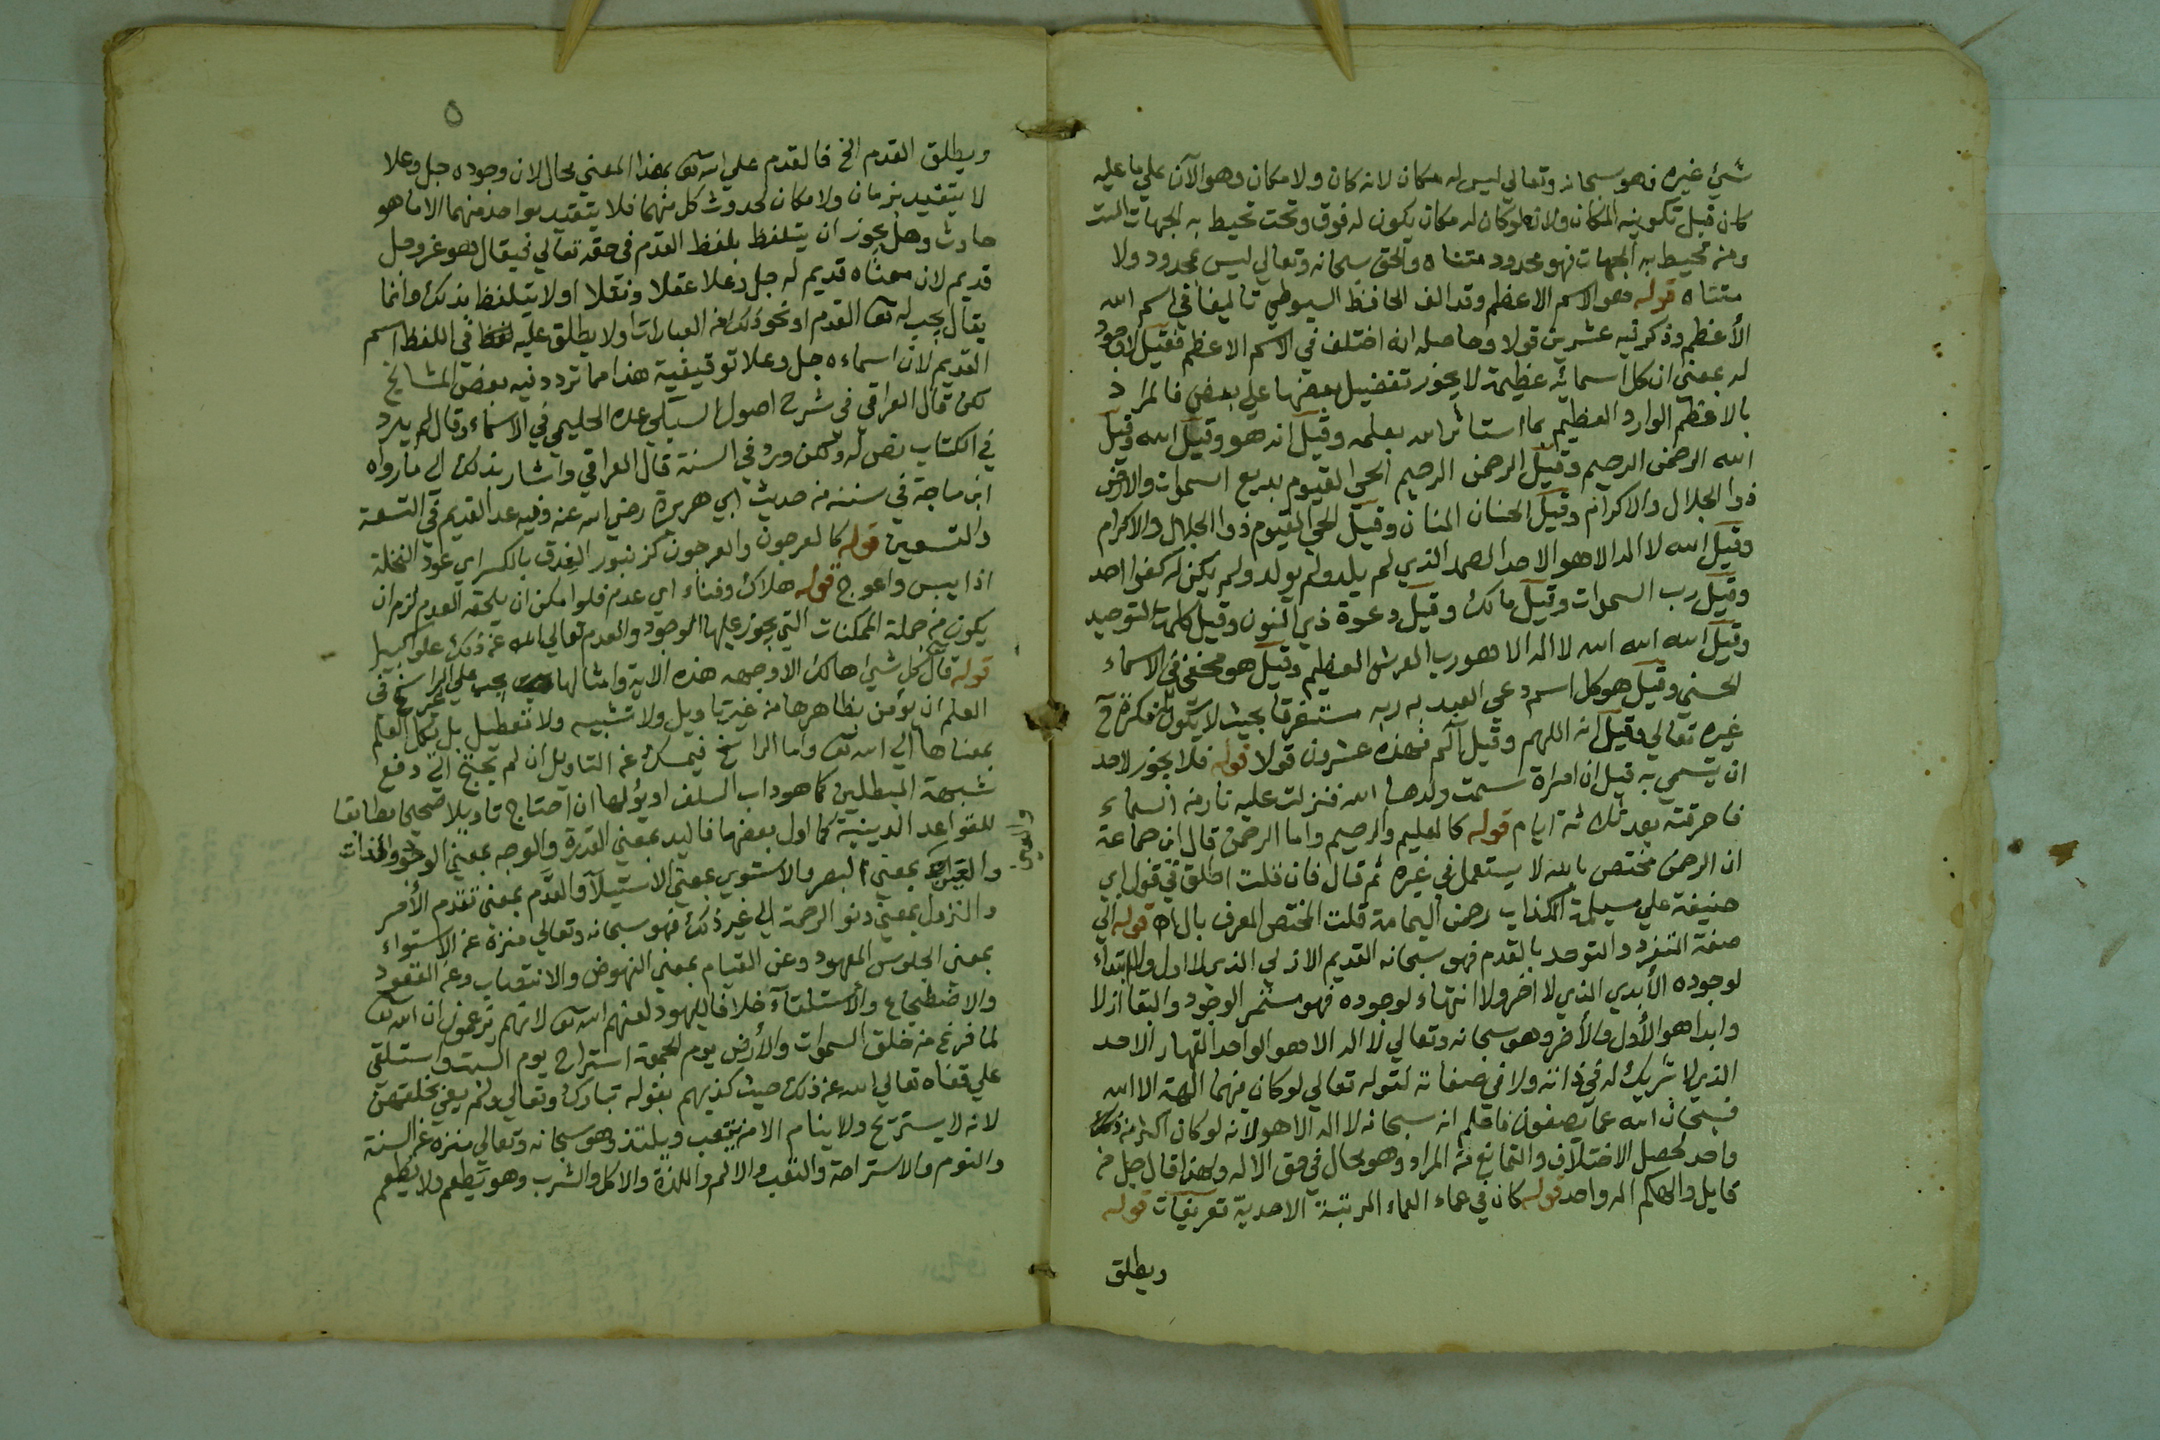 شيئ غيره فهو سبحانه وتعالي ليس له مكان لانه كان ولا مكان وهو الآن علي ما عليه
كان قبل تكوينه المكان ولانه لو كان له مكان يكون له فوق وتحت تحيط به الجهات الست
ومن تحيط به الجهات فهو محدود متناه والحق سبحانه وتعالي ليس بمحدود ولا
متناه قوله وهو الاسم الاعظم وقد الف الحافظ السيوطي تاليفا في اسم الله
الأعظم وذكر فيه عشرين قولا وحاصله انه اختلف في الاسم الاعظم فقيل لا وجود
له بمعني ان كل اسمائه عظيمة لا يجوز تفضيل بعضها علي بعض فالمراد
بالاعظم الوارد العظيم بما استاثر الله بعلمه وقيل انه هو وقيل الله وقيل
الله الرحمن الرحيم وقيل الرحمن الرحيم الحي القيوم بديع السموات والارض
ذو الجلال والاكرام وقيل الحنان المنان وقيل الحي القيوم ذو الجلال والاكرام
وقيل الله لا اله الا هو الاحد الصمد الذي لم يلد ولم يولد ولم يكن له كفوا احد
وقيل رب السموات وقيل مالك وقيل دعوة ذي النون وقيل كلمة التوحيد
وقيل الله الله الله لا اله الا هو رب العرش العظيم وقيل هو مخفي في الاسماء
الحسني وقيل هو كل اسم دعي العبد به ربه مستغرقا بحيث لا يكون في فكره ح
غيره تعالي وقيل انه اللهم وقيل الم فهذه عشرون قولا قوله فلا يجوز لاحد
ان يتسمي به قيل ان امراة سمت ولدها الله فنزلت عليه نار من السماء
فاحرقته بعد ثلاثة ايام قوله كالعليم والرحيم واما الرحمن قال ابن جماعة
ان الرحمن مختص بالله لا يستعمل في غيره ثم قال فان قلت اطلق في قول ابي
حنيفة علي مسيلمة الكذاب رحمن اليمامة قلت المختص المعرف بال اه قوله الي
صفة التفرد والتوحد بالقدم فهو سبحانه القديم الازلي الذي لا اول ولا ابتداء
لوجوده الأبدي الذي لا اخر ولا انتهاء لوجوده فهو مستمر الوجود والبقا ازلا
وابدا هو الأول والأخر وهو سبحانه وتعالي لا اله الا هو الواحد القهار الاحد
الذي لا شريك له في ذاته ولا في صفاته لقوله تعالي لو كان فيهما الهة الا الله
فسبحان الله عما يصفون فاعلم انه سبحانه لا اله الا هو لانه لو كان اكثر من ذلك
واحد لحصل الاختلاف والتمانع في المراد وهو محال في حق الاله ولهذا قال جل من
قايل والهكم اله واحد قوله كان في عماء العماء المرتبة الاحدية تعريفات قوله
ويطلق
٥
ويطلق القدم الخ فالقدم علي الله تعا بهذا المعني محال لان وجوده جل وعلا
لا يتقيد بزمان ولا مكان لحدوث كل منهما فلا يتقيد بواحد منهما الا ما هو
حادث وهل يجوز ان يتلفظ بلفظ القدم في حقه تعالي فيقال وهو عز وجل
قديم لان معناه قديم له جل وعلا عقلا ونقلا اولا يتلفظ بذلك وانما
يقال يجب له تعا القدم او نحو ذلك من العبارات ولا يطلق عليه في اللفظ اسم
القديم لان اسماءه جل وعلا توقيفية هذا مما تردد فيه بعض المشائخ
لكن قال العراقي في شرح اصول السبكي عده الحليمي في الاسماء وقال لم يرد
في الكتاب نص له ولكن ورد في السنة قال العراقي واشار بذلك الي ما رواه
ابن ماجة في سننه من حديث ابي هريرة رضي الله عنه وفيه عد القديم في التسعة
والتسعين قوله كالعرجون والعرجون كزنبور العذق بالكسر اي عود النخلة
اذا يبس واعوج قوله هلاك وفناء اي عدم فلو امكن ان يلحقه العدم لزم ان
يكون من جملة الممكنات التي يجوز عليها الوجود والعدم تعالي الله عن ذلك علوا كبيرا
قوله قال كل شيئ هالك الا وجهه هذه الاية وامثالها يجب علي غير الراسخ في
العلم ان يؤمن بظاهرها من غير تاويل ولا تشبيه ولا تعطيل بل يكل العلم
بمعناها الي الله تعا واما الراسخ فيمسك عن التاويل ان لم يحتج الي دفع
شبهة المبطلين كما هو داب السلف او يؤلها ان احتاج تاويلا صحيحا مطابقا
للقواعد الدينية كما اول بعضها فاليد بمعني القدرة والوجه بمعني الوجود والذات
والعين بمعني البصر والاستوي بمعني الاستيلآ والقدم بمعني تقدم الأمر
والنزول بمعني دنو الرحمة الي غير ذلك فهو سبحانه وتعالي منزه عن الاستواء
بمعني الجلوس المعهود وعن القيام بمعني النهوض والانتصاب وعن القعود
والاضطجاع والاستلقآء خلافا لليهود لعنهم الله تعا لانهم يزعمون ان الله تعا
لما فرغ من خلق السموات والأرض يوم الجمعة استراح يوم السبت واستلقي
علي قفاه تعالي الله عن ذلك حيث كذبهم بقوله تبارك وتعالي ولم يعي بخلقهن
لانه لا يستريح ولا ينام الا من يتعب ويلتذ وهو سبحانه وتعالي منزه عن السنة
والنوم والاستراحة والتعب والالم واللذة والاكل والشرب وهو يطعم ولا يطعم